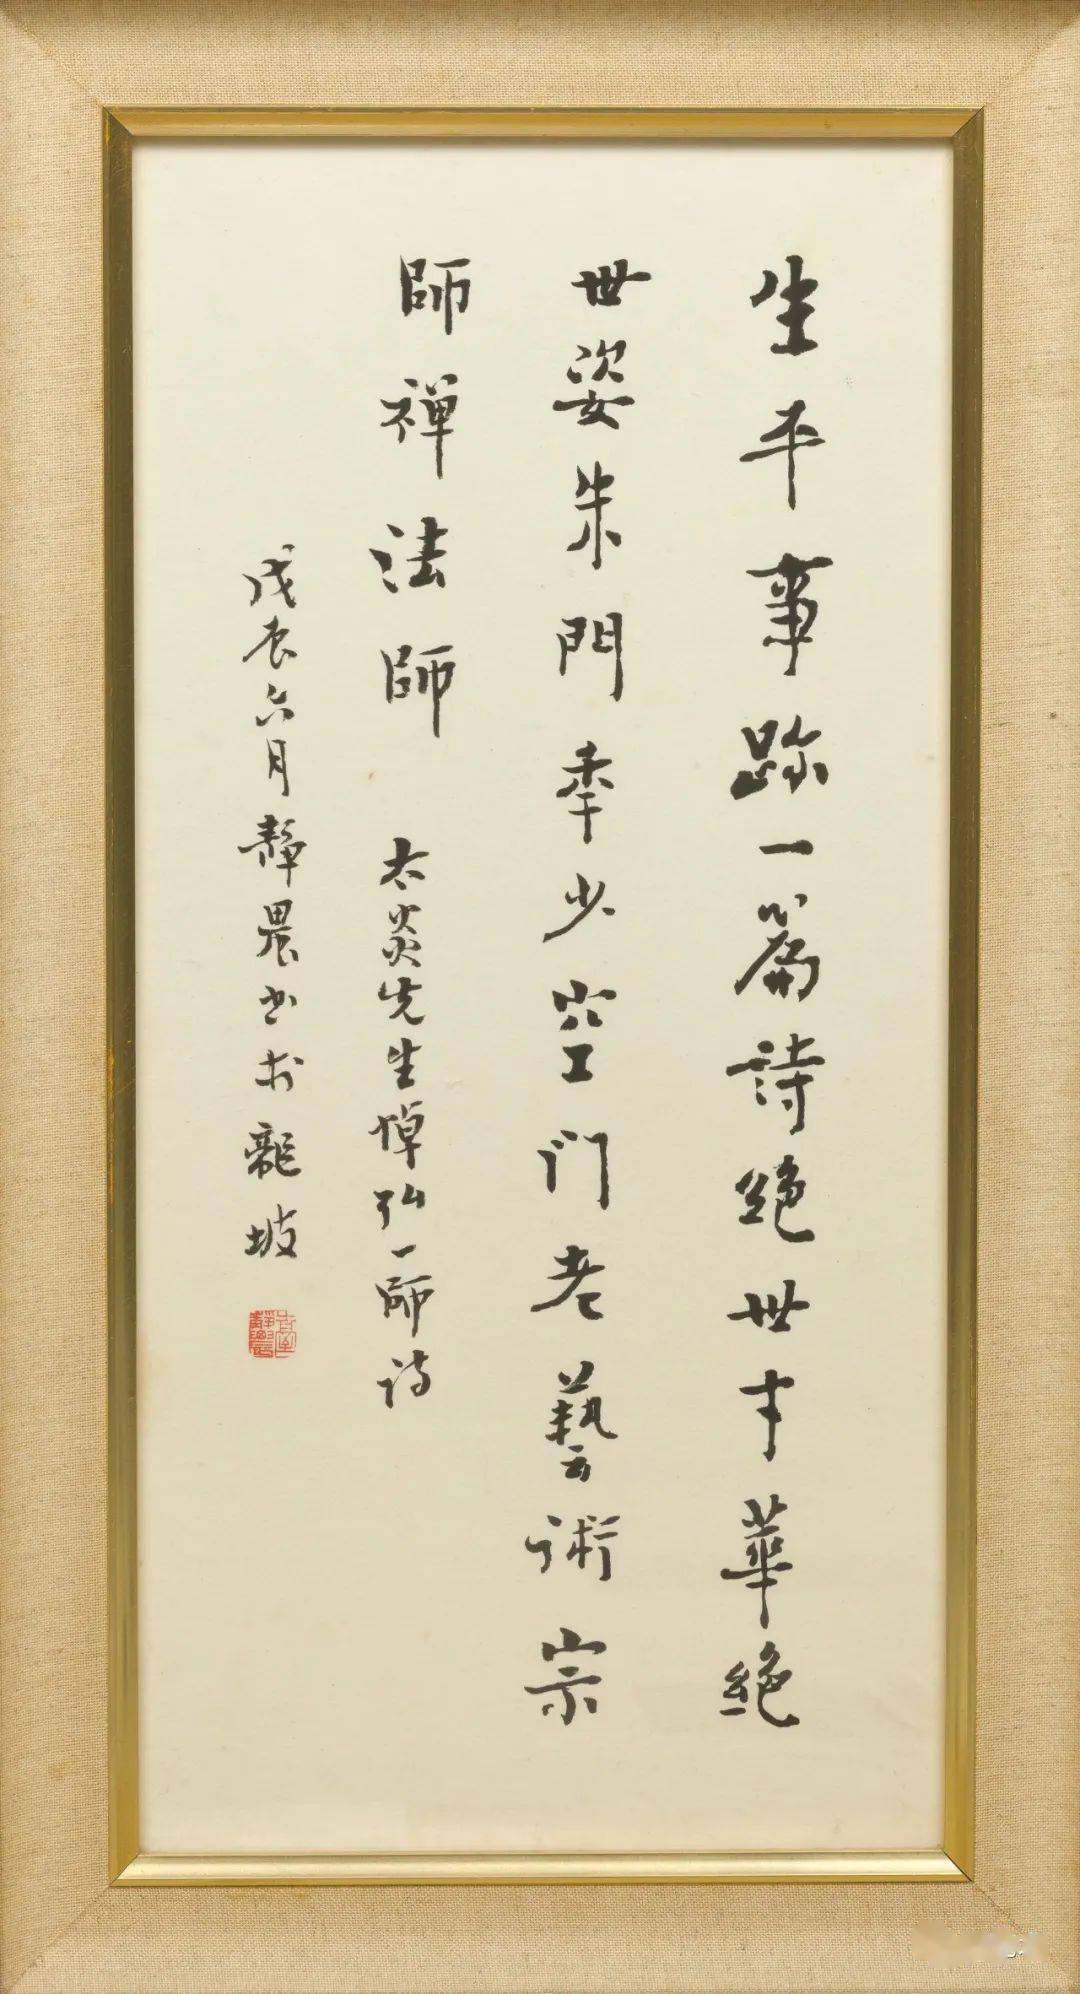 生平事跡一篇詩絕世才華絕
世姿朱門年少空門老藝術宗
師禪法師 太炎先生悼弘一師詩
戊辰六月靜農書於龍坡